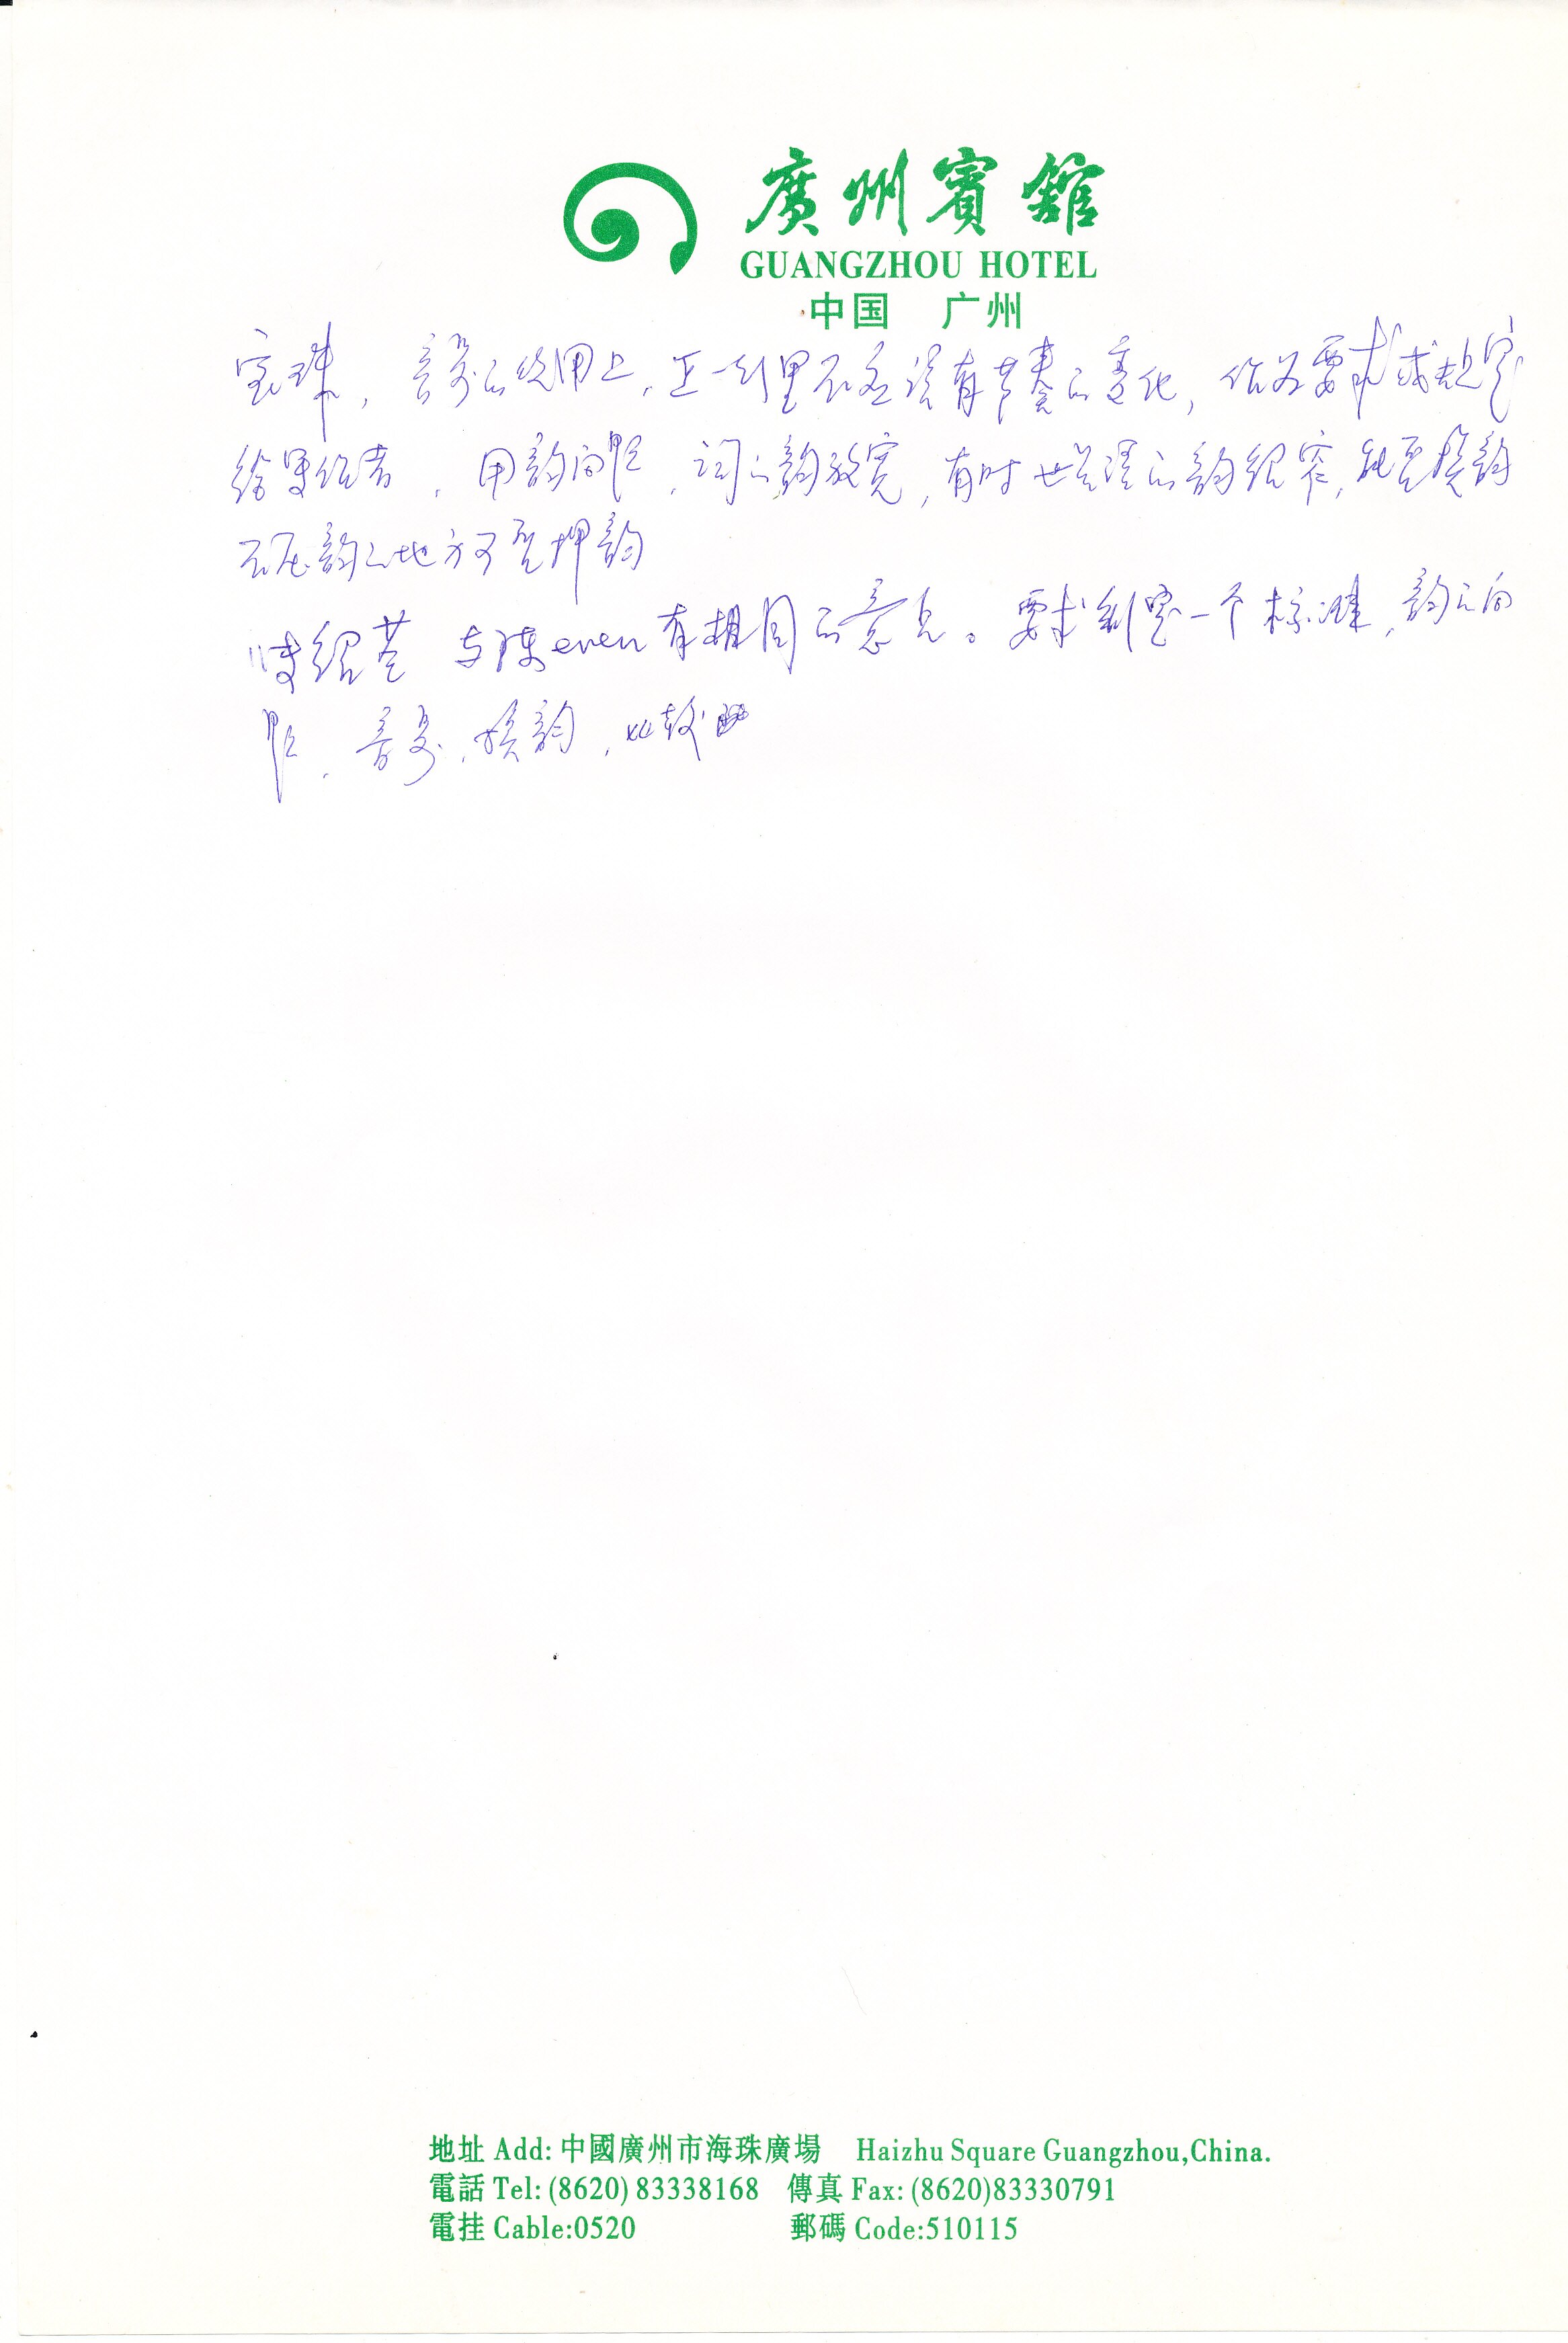 廣州賓館
GUANGZHOU HOTEL
中国 广州
宝珠,音步的使用上,正一刻里不应没有节奏的变化,作为要求或规定
给写作者,用韵问题,词的韵放宽,有时也觉得的韵很窄,就是换韵
不压韵的地方可以押韵
陈绍基 与陈even有相同的意见。要求制定一个标准,韵的问
题,音步,换韵,比较
地址 Add: 中國廣州市海珠廣場 Haizhu Square Guangzhou,China.
電話 Tel: (8620) 83338168 傳真 Fax: (8620)83330791
電挂 Cable:0520 郵碼 Code:510115